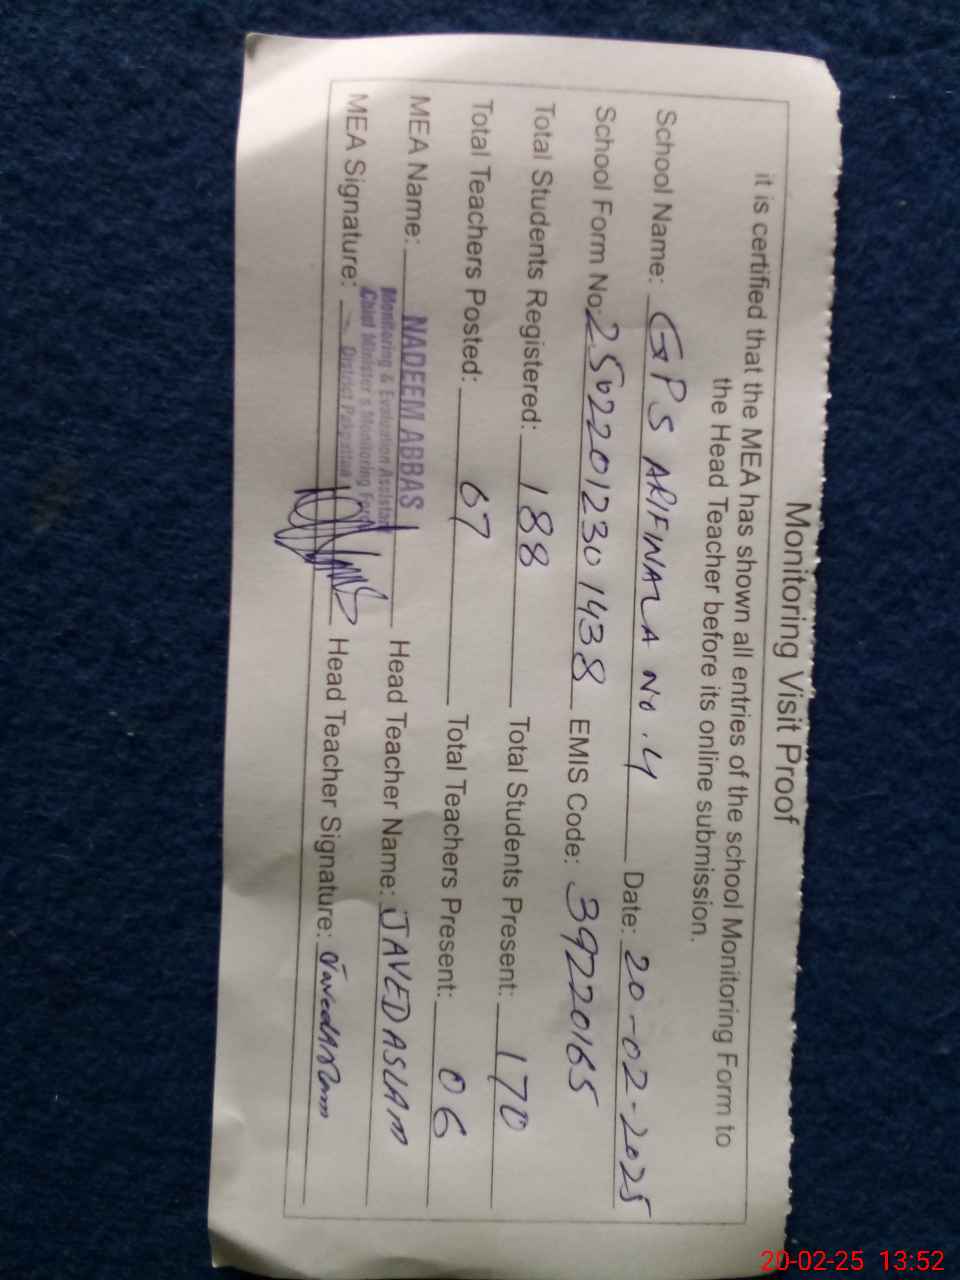 Monitoring Visit Proof
it is certified that the MEA has shown all entries of the school Monitoring Form to
the Head Teacher before its online submission.
School Name: GPS ARIFWALA NO.4 Date: 20-02-2025
School Form No. 25022012301438 EMIS Code: 39220165
Total Students Registered: 188 Total Students Present: 170
Total Teachers Posted: 07 Total Teachers Present: 06
MEA Name: NADEEM ABBAS Head Teacher Name: JAVED ASLAM
Monitoring & Evaluation Assistant
Chief Minister's Monitoring Force
District Pakpattan
MEA Signature: Head Teacher Signature: Javed Aslam
20-02-25 13:52